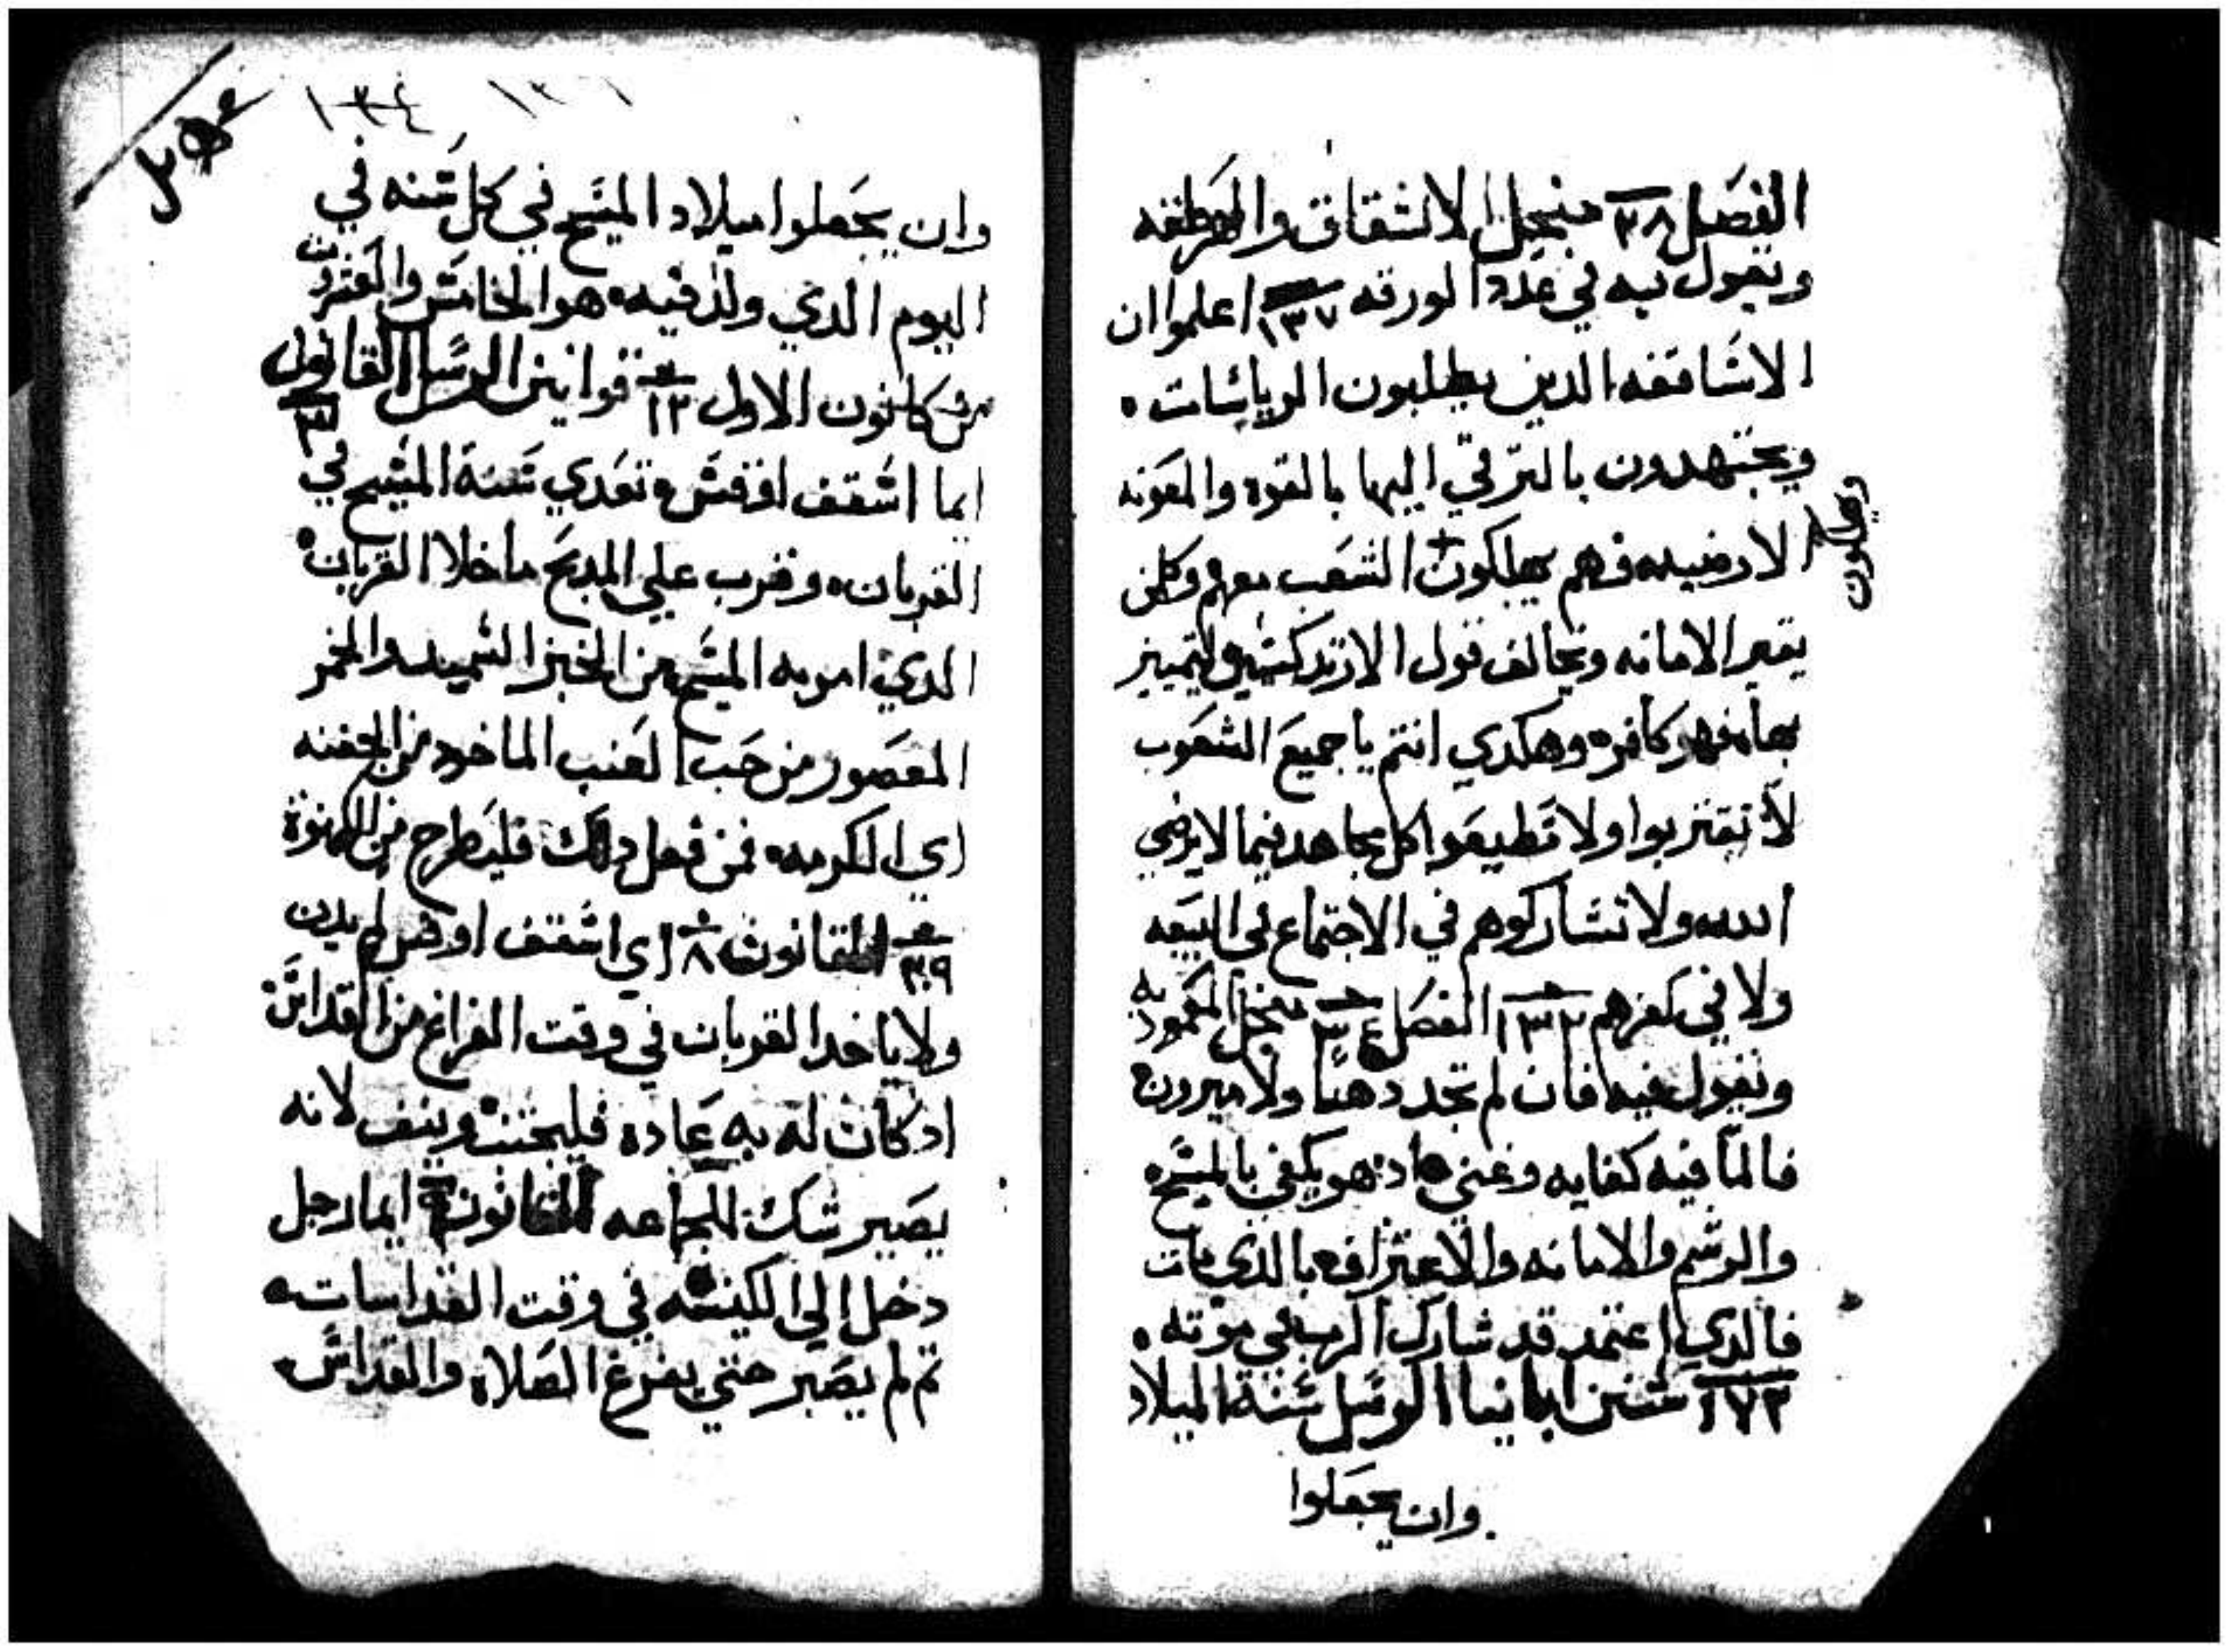 الفصل ٣٨ منجل الانشقاق والهرطقه
ونقول فيه في عدد الورقه ١٣٧ اعلموا ان
الاساقفه الدين يطلبون الرياسات
ويجتهدون بالترقي اليها بالقوه والمعونه
الارضيه فهم يهلكون الشعب معهم وكلمن
يغير الامانه ويخالف قول الارتدكسيين
فهو كافر وهكدي انتم يا جميع الشعوب
لا تقتربوا ولا تطيعوا كل مجاهد فيما لا يرضي
الله ولا تشاركوهم في الاجتماع في البيعه
ولا في كفرهم ١٣٢ الفصل ٣٤ منجل المعموديه
ونقول فيه فان لم تجد دهنا ولا ميرون
فالما فيه كفايه وغني اد هو يكفي بالمسيح
والرسم والامانه والاعتراف بالذي مات
فالدي اعتمد قد شارك الرب في موته
١٧٢ سنن ايمانيا الرسل سنة الميلاد
وان يجعلوا
١٣٤
وان يجعلوا ميلاد المسيح في كل سنه في
اليوم الدي ولد فيه هو الخامس والعشرون
من كانون الاول ١٢ قوانين الرسل القانون
ايما اسقف اوقس وتعدي سنة المسيح في
القربان وقرب علي المدبح ماخلا القربان
الدي امر به المسيح من الخبز السميد والخمر
المعصور من حب العنب الماخود من الجفنه
اي الكرمه فمن فعل دلك فليطرح من الكهنوة
٣٩ القانون ٨ اي اسقف او قس لم يدن
ولا ياخد القربان في وقت الفراغ من القداس
اد كان له به عاده فليجتنب وينف لانه
يصير شك للجماعه القانون ٩ ايما رجل
دخل الي الكنيسه في وقت القداسات
تم لم يصبر حتي يفرغ الصلاة والقداس